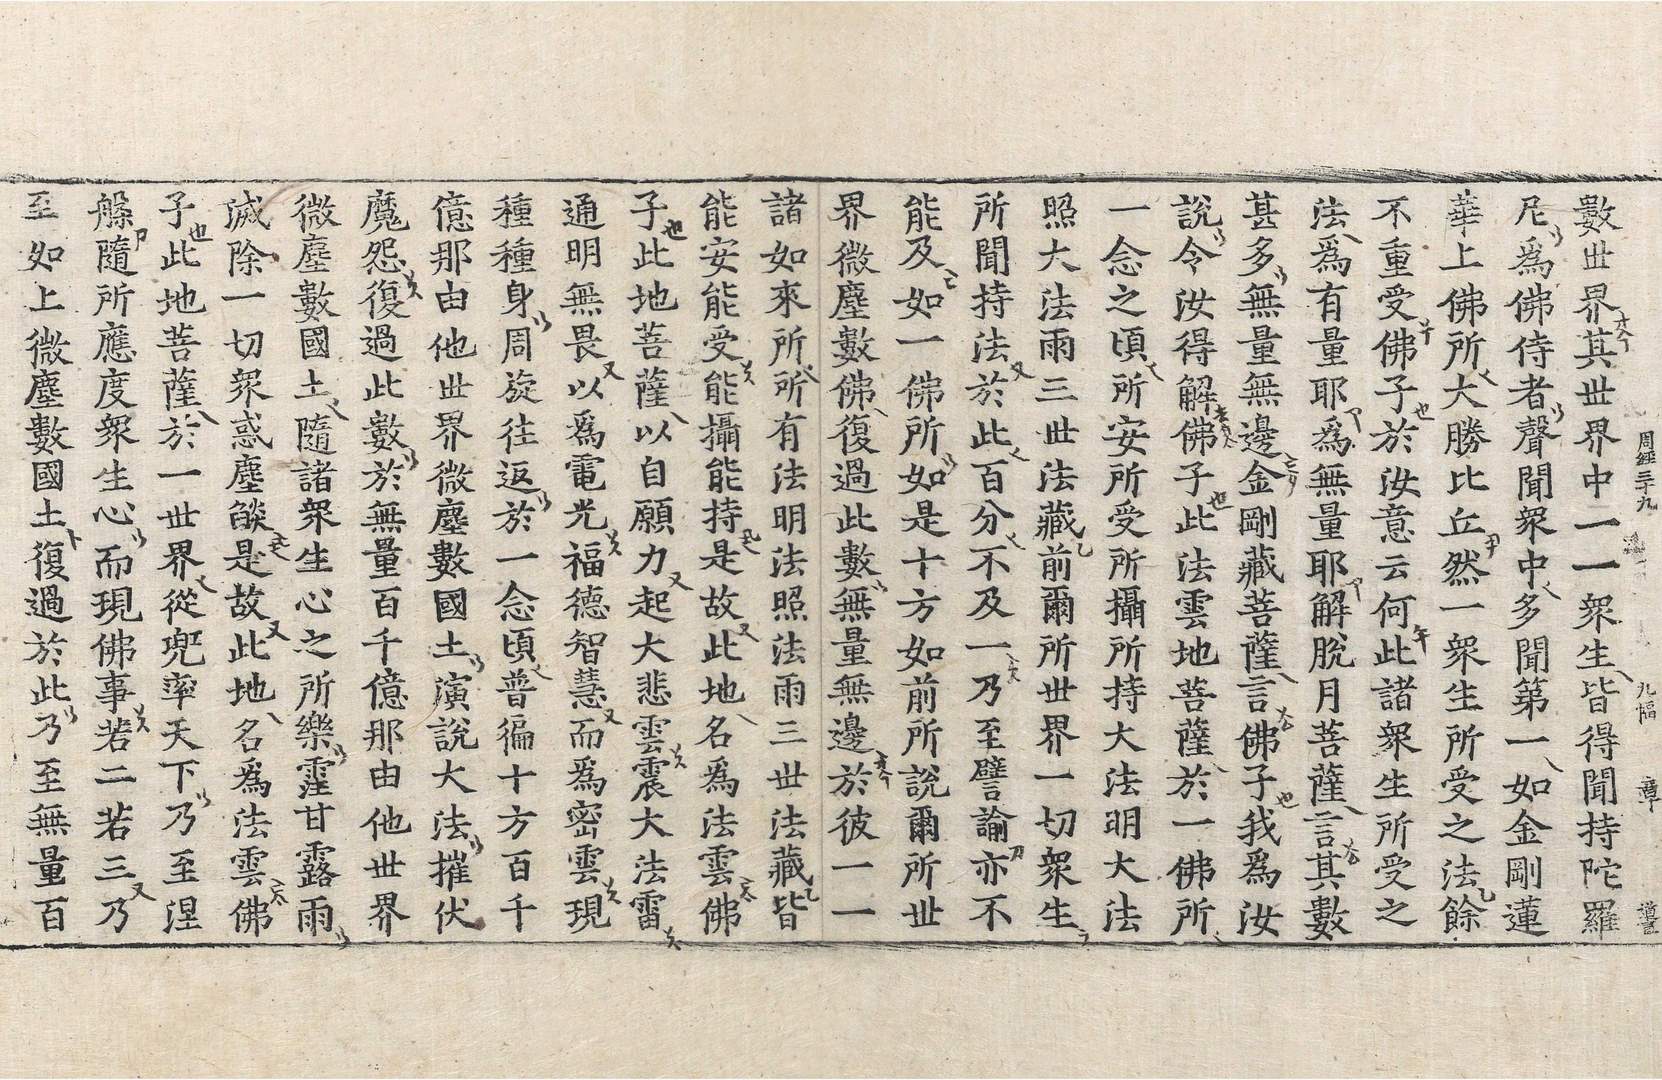 周經三十九 九幅 章 道言
數世界其世界中一一衆生皆得聞持陀羅
尼爲佛侍者聲聞衆中多聞第一如金剛蓮
華上佛所大勝比丘然一衆生所受之法餘
不重受佛子於汝意云何此諸衆生所受之
法爲有量耶爲無量耶解脫月菩薩言其數
甚多無量無邊金剛藏菩薩言佛子我爲汝
說令汝得解佛子此法雲地菩薩於一佛所
一念之頃所安所受所攝所持大法明大法
照大法雨三世法藏前爾所世界一切衆生
所聞持法於此百分不及一乃至譬諭亦不
能及如一佛所如是十方如前所說爾所世
界微塵數佛復過此數無量無邊於彼一一
諸如來所所有法明法照法雨三世法藏皆
能安能受能攝能持是故此地名爲法雲佛
子此地菩薩以自願力起大悲雲震大法雷
通明無畏以爲電光福德智慧而爲密雲現
種種身周旋往返於一念頃普徧十方百千
億那由他世界微塵數國土演說大法摧伏
魔怨復過此數於無量百千億那由他世界
微塵數國土隨諸衆生心之所樂霔甘露雨
滅除一切衆惑塵燄是故此地名爲法雲佛
子此地菩薩於一世界從兜率天下乃至涅
槃隨所應度衆生心而現佛事若二若三乃
至如上微塵數國土復過於此乃至無量百